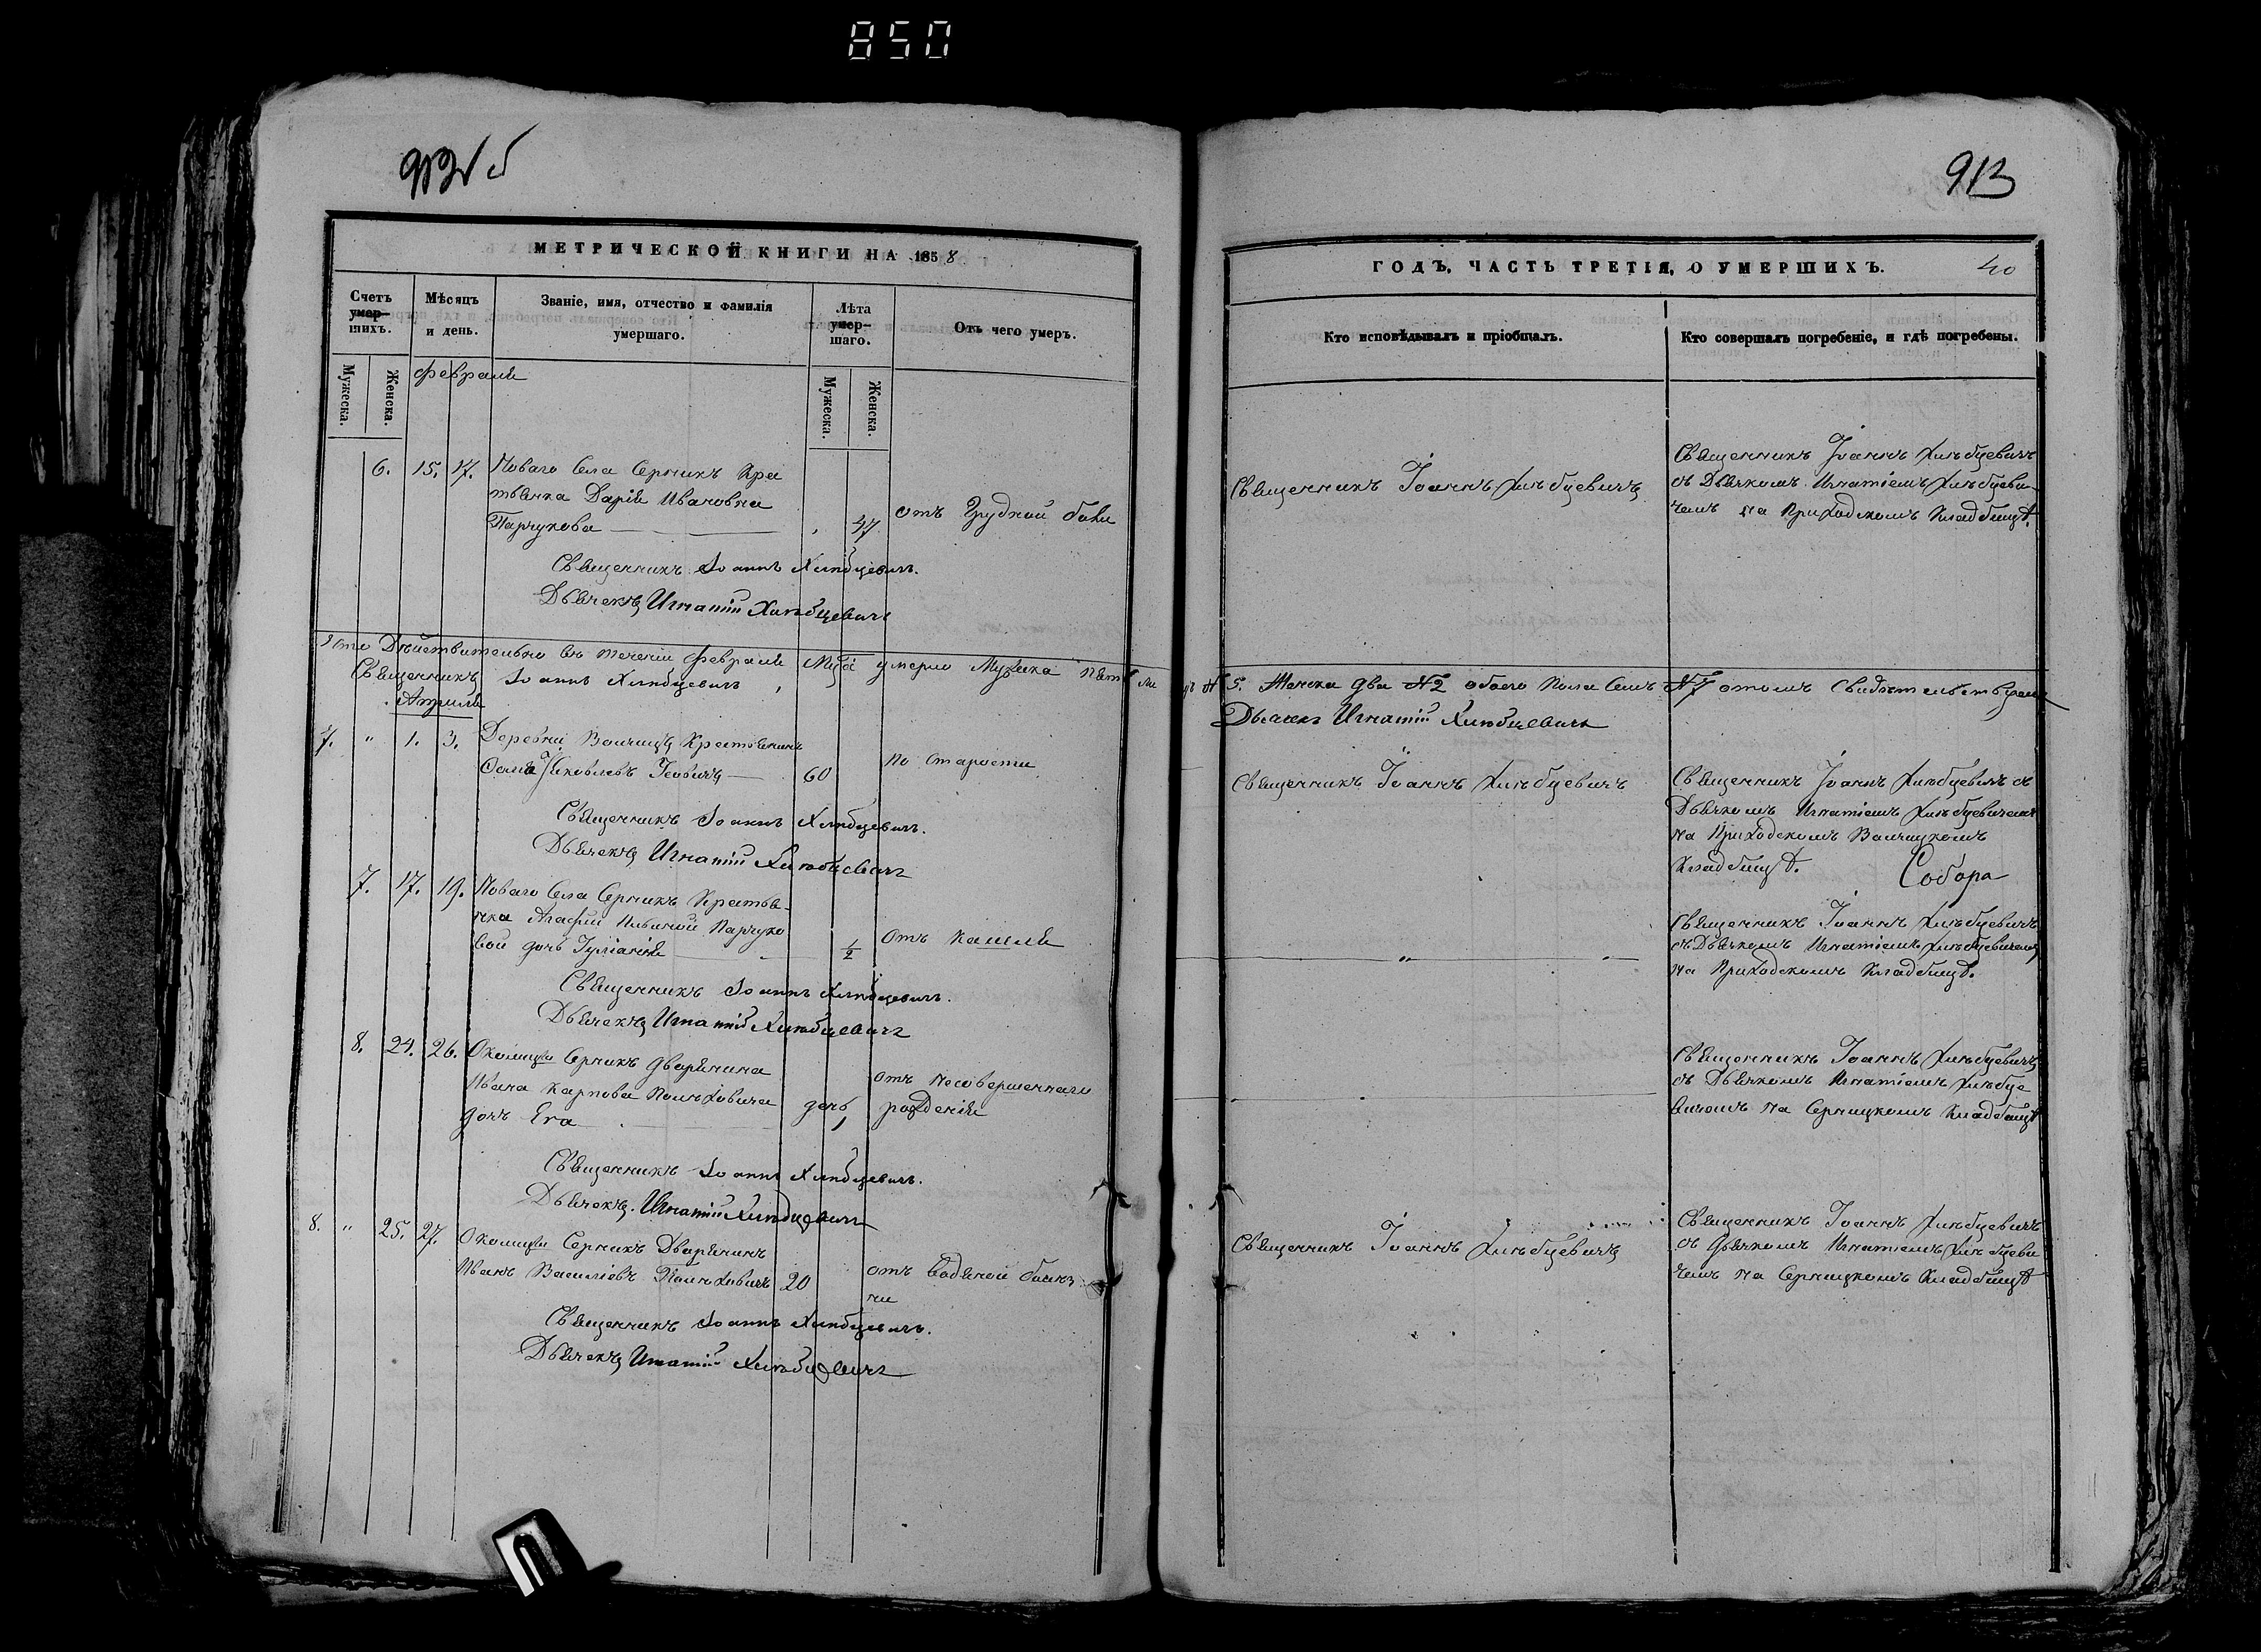 850
913
МЕТРИЧЕСКОЙ КНИГИ НА 1858
Счетъ умер-шихъ.
Мѣсяцъ и день.
Званіе, имя, отчество и фамилія умершаго.
Лѣта умер-шаго.
Отъ чего умеръ.
Мужеска.
Женска.
Мужеска.
Женска.
Февраля
6. 15. 17. Новаго Села Серникъ Крес
тьянка Дарія Ивановна
Парчукова 47 отъ Грудной боли
Священникъ Іоаннъ Хлѣбцевичъ.
Дьячекъ Игнатій Хлѣбцевичъ
Что Дѣйствительно въ теченіи Февраля Мца умерло Мужеска пять
Священникъ Іоаннъ Хлѣбцевичъ
Апрѣля
7. " 1. 3. Деревни Вичицъ Крестьянинъ
Яковлевъ 60 по старости
Священникъ Іоаннъ Хлѣбцевичъ.
Дьячекъ Игнатій Хлѣбцевичъ
7. 17. 19. Новаго Села Серникъ Крестья-
нка Агафіи Парчуко
вой дочь Іуліанія 1/2 Отъ кашля
Священникъ Іоаннъ Хлѣбцевичъ.
Дьячекъ Игнатій Хлѣбцевичъ
8. 24. 26. Околицы Серникъ дворянина
Ивана Карпова Полховича день отъ несовершеннаго
дочь Ева рожденія
Священникъ Іоаннъ Хлѣбцевичъ.
Дьячекъ Игнатій Хлѣбцевичъ
8. " 25. 27. Околицы Серникъ Дворянинъ
Иванъ Василіевъ Полховичъ 20 отъ водяной болѣз
ни
Священникъ Іоаннъ Хлѣбцевичъ.
Дьячекъ Игнатій Хлѣбцевичъ
913
ГОДЪ, ЧАСТЬ ТРЕТІЯ, О УМЕРШИХЪ. 40
Кто исповѣдывалъ и пріобщалъ.
Кто совершалъ погребеніе, и гдѣ погребены.
Священникъ Іоаннъ Хлѣбцевичъ
Священникъ Іоаннъ Хлѣбцевичъ
съ Дьячкомъ Игнатіемъ Хлѣбцеви-
чемъ на Приходскомъ Кладбищѣ.
№ 5. Женска два №2 обоего пола семь №7 о томъ свидѣтельствуемъ
Дьячекъ Игнатій Хлѣбцевичъ
Священникъ Іоаннъ Хлѣбцевичъ
Священникъ Іоаннъ Хлѣбцевичъ съ
Дьячкомъ Игнатіемъ Хлѣбцевичемъ
на Приходскомъ Вичицкомъ
Кладбищѣ. Собора
Священникъ Іоаннъ Хлѣбцевичъ
съ Дьячкомъ Игнатіемъ Хлѣбцевичемъ
на Приходскомъ Кладбищѣ.
Священникъ Іоаннъ Хлѣбцевичъ
съ Дьячкомъ Игнатіемъ Хлѣбце
вичемъ на Серницкомъ Кладбищѣ
Священникъ Іоаннъ Хлѣбцевичъ
Священникъ Іоаннъ Хлѣбцевичъ
съ Дьячкомъ Игнатіемъ Хлѣбцеви
чемъ на Серницкомъ Кладбищѣ